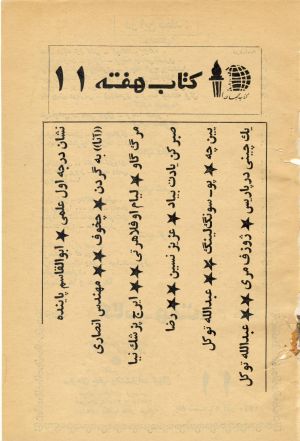 کتاب هفته ۱۱
یك چینی در پاریس ★ ژوزف مری ★★ عبدالله توکل
یین چه ★ پو - سونگ لینگ ★★ عبدالله توکل
صبر کن یادت بیاد ★ عزیز نسین ★★ رضا
مرگ گاو ★ لیام اوفلاهرتی ★★ ایرج پزشك نیا
«آنا» به گردن ★ چخوف ★★ مهندس انصاری
نشان درجه اول علمی ★ ابوالقاسم پاینده